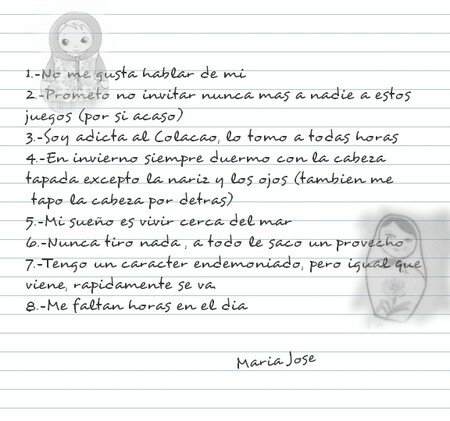 1.-No me gusta hablar de mi
2.-Prometo no invitar nunca mas a nadie a estos
juegos (por si acaso)
3.-Soy adicta al Colacao, lo tomo a todas horas
4.-En invierno siempre duermo con la cabeza
tapada excepto la nariz y los ojos (tambien me
tapo la cabeza por detras)
5.-Mi sueño es vivir cerca del mar
6.-Nunca tiro nada, a todo le saco un provecho
7.-Tengo un caracter endemoniado, pero igual que
viene, rapidamente se va
8.-Me faltan horas en el dia
Maria Jose